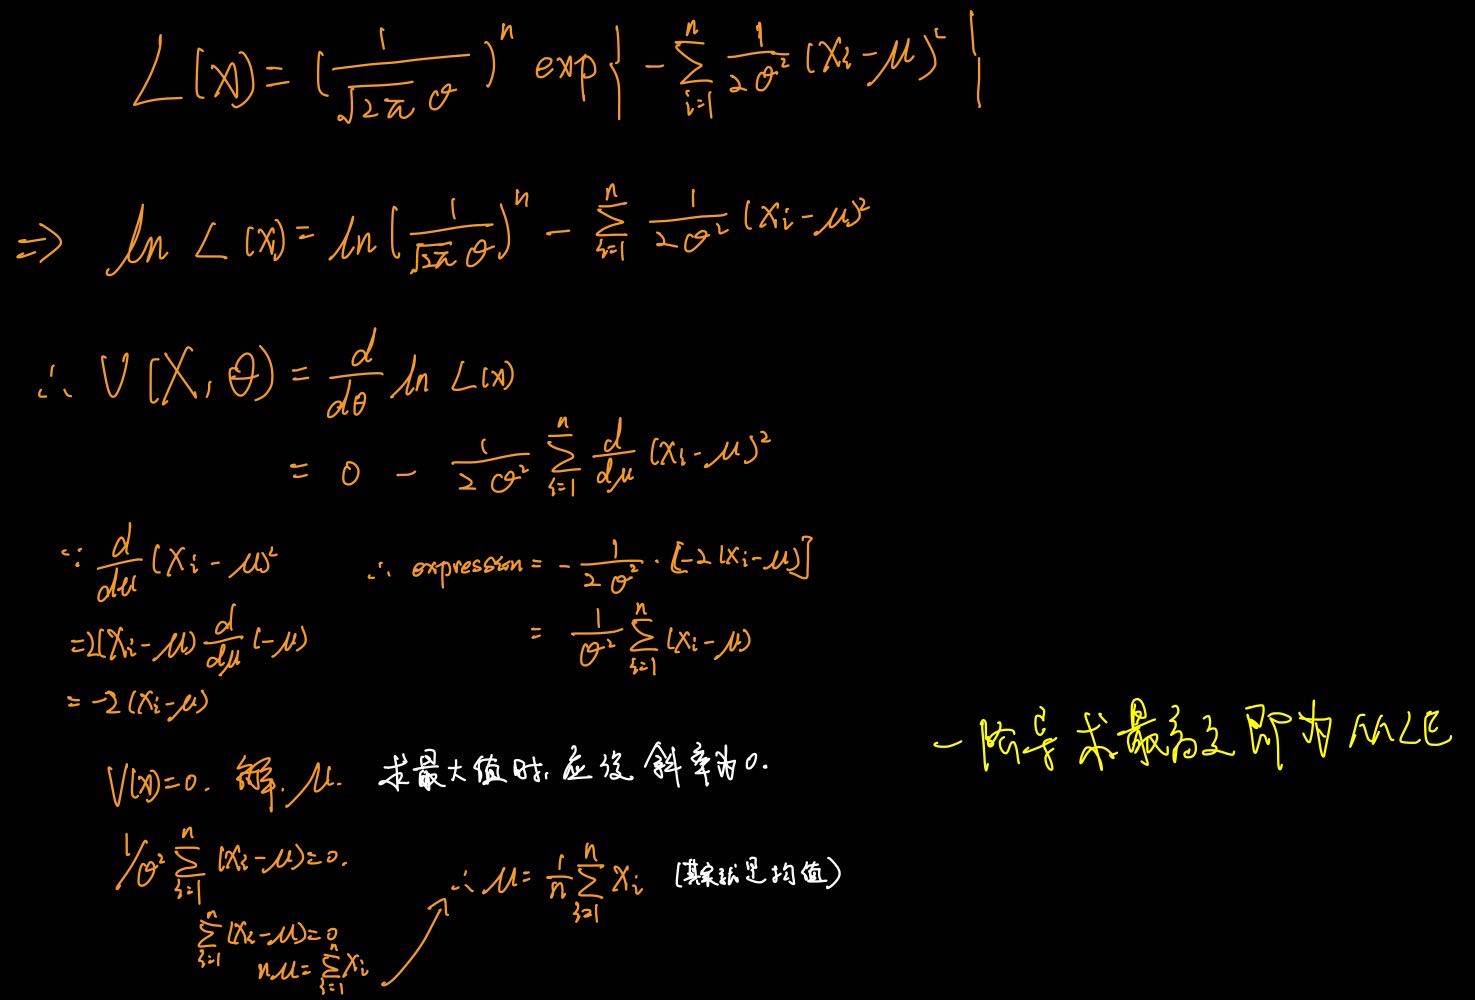 L(x) = (1/√2π σ)^n exp{ -∑_{i=1}^{n} 1/2σ² (Xi-μ)² }
⇒ ln L(x) = ln(1/√2π σ)^n - ∑_{i=1}^{n} 1/2σ² (Xi-μ)²
∴ V(X, θ) = d/dθ ln L(x)
= 0 - 1/2σ² ∑_{i=1}^{n} d/dμ (Xi-μ)²
∵ d/dμ (Xi-μ)²
=2(Xi-μ) d/dμ (-μ)
= -2(Xi-μ)
∴ expression = - 1/2σ² · [-2(Xi-μ)]
= 1/σ² ∑_{i=1}^{n} (Xi-μ)
V(x)=0. 解. μ. 求最大值时, 应该斜率为0.
一阶导求最高点即为MLE
1/σ² ∑_{i=1}^{n} (Xi-μ)=0.
∑_{i=1}^{n} (Xi-μ)=0
nμ=∑_{i=1}^{n} Xi
∴ μ= 1/n ∑_{i=1}^{n} Xi (其实就是均值)